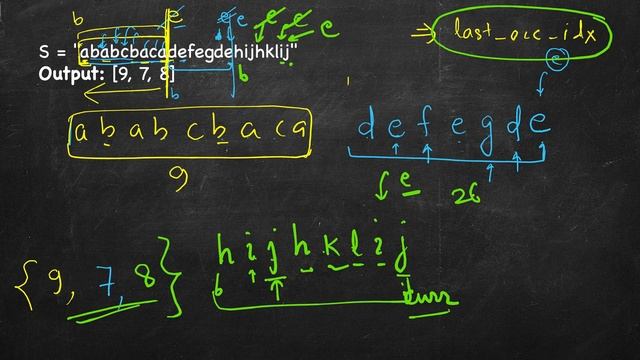 b e e e e e e
last_occ_idx
S = "ababcbacadefegdehijhklij"
e
Output: [9, 7, 8]
b b
a b a b c b a c a
d e f e g d e
9
e 26
h i j h k l i j
{ 9, 7, 8 }
b curr